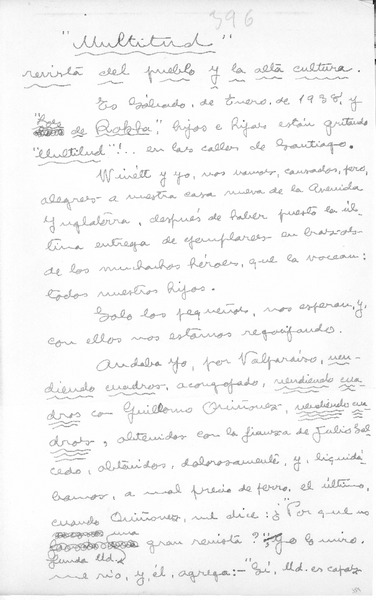 396
"Multitud"
revista del pueblo y la alta cultura.
Es Sábado, de Enero, de 1938, y
"Los de Rokha", hijos e hijas están gritando
"Multitud"!... en las calles de Santiago.
Winétt y yo, nos vamos, cansados, pero,
alegres a nuestra casa nueva de la Avenida
Ynglaterra, después de haber puesto la úl-
tima entrega de ejemplares en brazos
de los muchachos héroes, que la vocean:
todos nuestros hijos.
Solo los pequeños, nos esperan, y,
con ellos nos estamos regocijando.
Andaba yo, por Valparaíso, ven-
diendo cuadros, acongojado, vendiendo cua-
dros con Guillermo Quiñonez, vendiendo cua-
dros, obtenidos con la fianza de Julio Sal-
cedo, obtenidos, dolorosamente, y, liquidá-
bamos, a mal precio de perro, el último,
cuando Quiñonez, me dice: ¿"Por que no
funda Ud. una gran revista?" Yo lo miro,
me río, y, él, agrega: - "Sí, Ud. es capaz